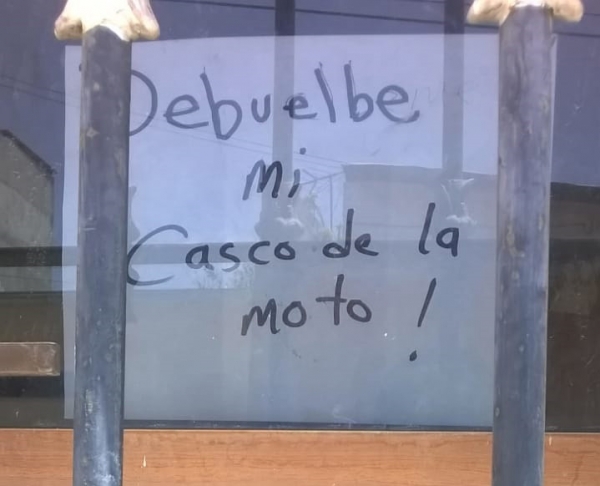 Debuelbe
mi
Casco de la
moto!